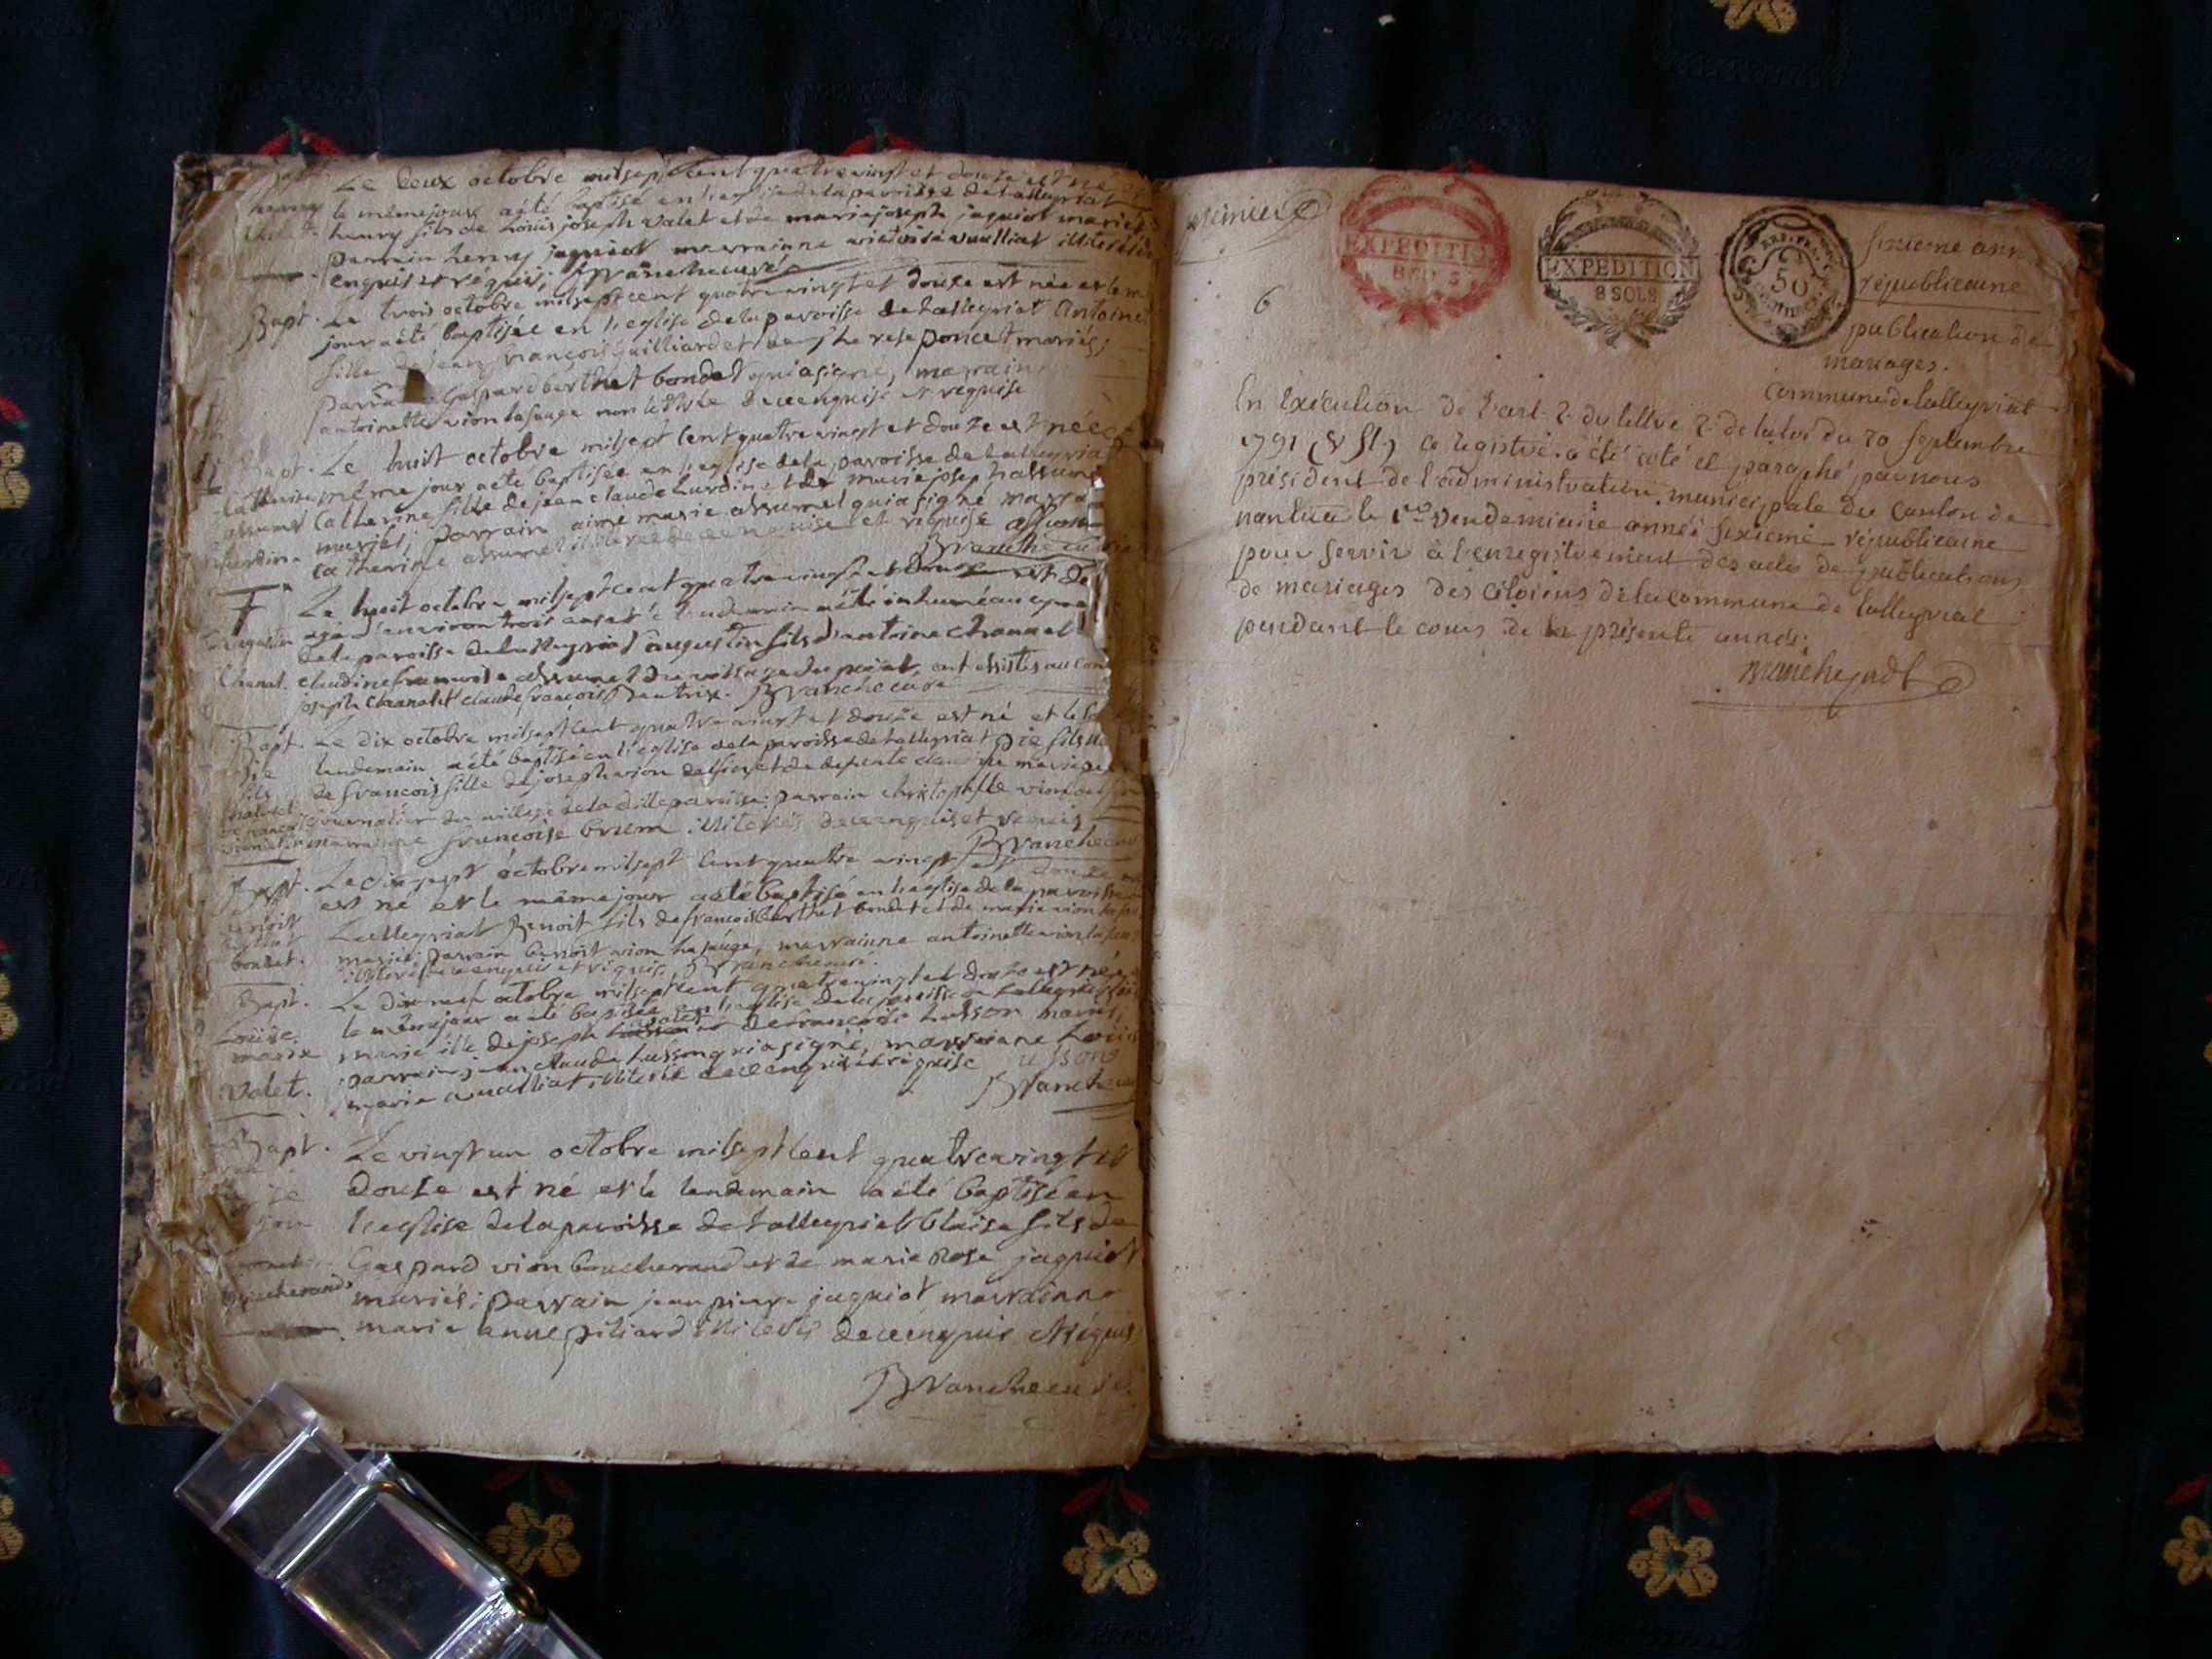 Bapt. Le deux octobre mil sept cent quatre vingt et douze est né et
henry le même jour a été baptisé en l'eglise de la paroisse de Lalleyriat
Valet. henry fils de Louis joseph Valet et de marie joseph jaquiot mariés
parrain henry jaquiot marrainne vualliat illiterés
enquis et réquis, Branche curé
Bapt. Le trois octobre mil sept cent quatre vingt et douze est née et le m
jour a été baptisée en l'eglise de la paroisse de Lalleyriat Antoine
fille de jean françois juilliard et de therese poncet mariés;
parrain Gaspard berthet bondet qui a signé, marrainne
antoinette vion lasauge non lettrée de ce enquise et requise
Bapt. Le huit octobre mil sept cent quatre vingt et douze est née
Catherine même jour a été baptisée en l'eglise de la paroisse de Lalleyria
assumel Catherine fille de jean claude hurdin et de marie joseph assume
hurdin mariés; parrain aimé marie assumel qui a signé marra
catherine assumel illiterée de ce enquise et requise
Branche curé
F Le huit octobre mil sept cent quatre vingt et douze est de
agé d'environ trois ans et le lendemain a été inhumé au cyme
augustin de la paroisse de Lalleyriat augustin fils d'antoine chanal
Chanal. claudine francoise assumel du village du poizat, ont assistés au con
joseph chanal et claude françois Beatrix. Branche curé
Bapt. Le dix octobre mil sept cent quatre vingt et douze est né et le
Pie lendemain a été baptisé en l'eglise de la paroisse de Lalleyriat Pie fils
fils de francois fille de joseph vion delfin et de defunte
journalier du village de la ditte paroisse: parrain christophle vion delfin
marrainne francoise brum illiterés de ce enquis et requis
Branche curé
Bapt. Le dix sept octobre mil sept cent quatre vingt et douze
est né et le même jour a été baptisé en l'eglise de la paroisse
benoit Lalleyriat Benoit fils de francois berthet bondet et de marie vion lasau
berthet mariés; parrain benoit vion lasauge, marrainne antoinette vion lasau
bondet. illiterés de ce enquis et réquis, Branche curé.
Bapt. Le dix neuf octobre mil sept cent quatre vingt et douze est née
Louise. le même jour a été baptisée en l'eglise de la paroisse de Lalleyriat Louise
marie marie fille de joseph valet et de francoise husson mariés;
parrain jean claude husson qui a signé, marrainne Louise
Valet. marie vualliat illiterée de ce enquise et réquise usson
Branche curé
Bapt. Le vingt un octobre mil sept cent quatre vingt et
douze est né et le lendemain a été baptisé en
l'eglise de la paroisse de Lalleyriat blaise fils de
Gaspard vion boucherand et de marie Rose jaquiot
boucherand mariés; parrain jean pierre jaquiot, marrainne
marie anne piliard illiterés de ce enquis et réquis
Branche curé
premier
EXPEDITION
8 SOLS
EXPEDITION
8 SOLS
REP. FRA.
50
CENTIMES
6
sixieme ann
républicaine
publication de
mariages.
Commune de lalleyriat
En Exécution de l'art. 2. du tittre 2. de la loi du 20 septembre
1791 (v. st.) ce registre a été coté et paraphé par nous
président de l'administration municipale du Canton de
nantua le 1er. Vendemiaire année sixieme républicaine
pour servir à l'enregistrement des actes de publications
de mariages des citoiens de la commune de lalleyriat
pendant le cours de la présente année;